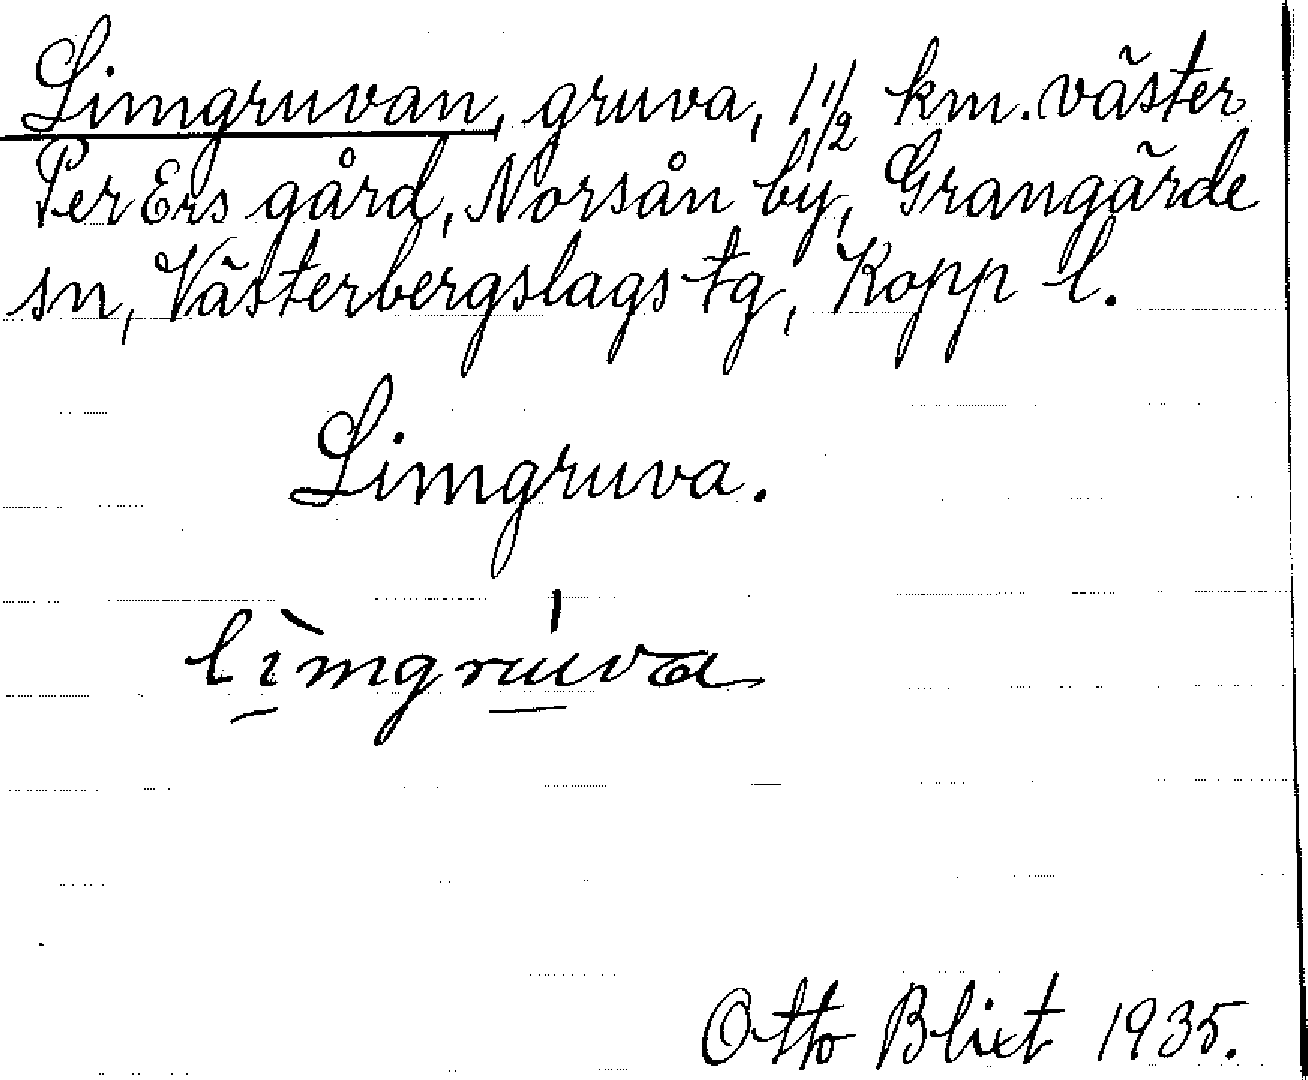 Limgruvan, gruva, 1 1/2 km. väster
Per Ers gård, Norsån by, Grangärde
sn, Västerbergslags tg, Kopp l.
Limgruva.
lìmgrúva
Otto Blixt 1935.